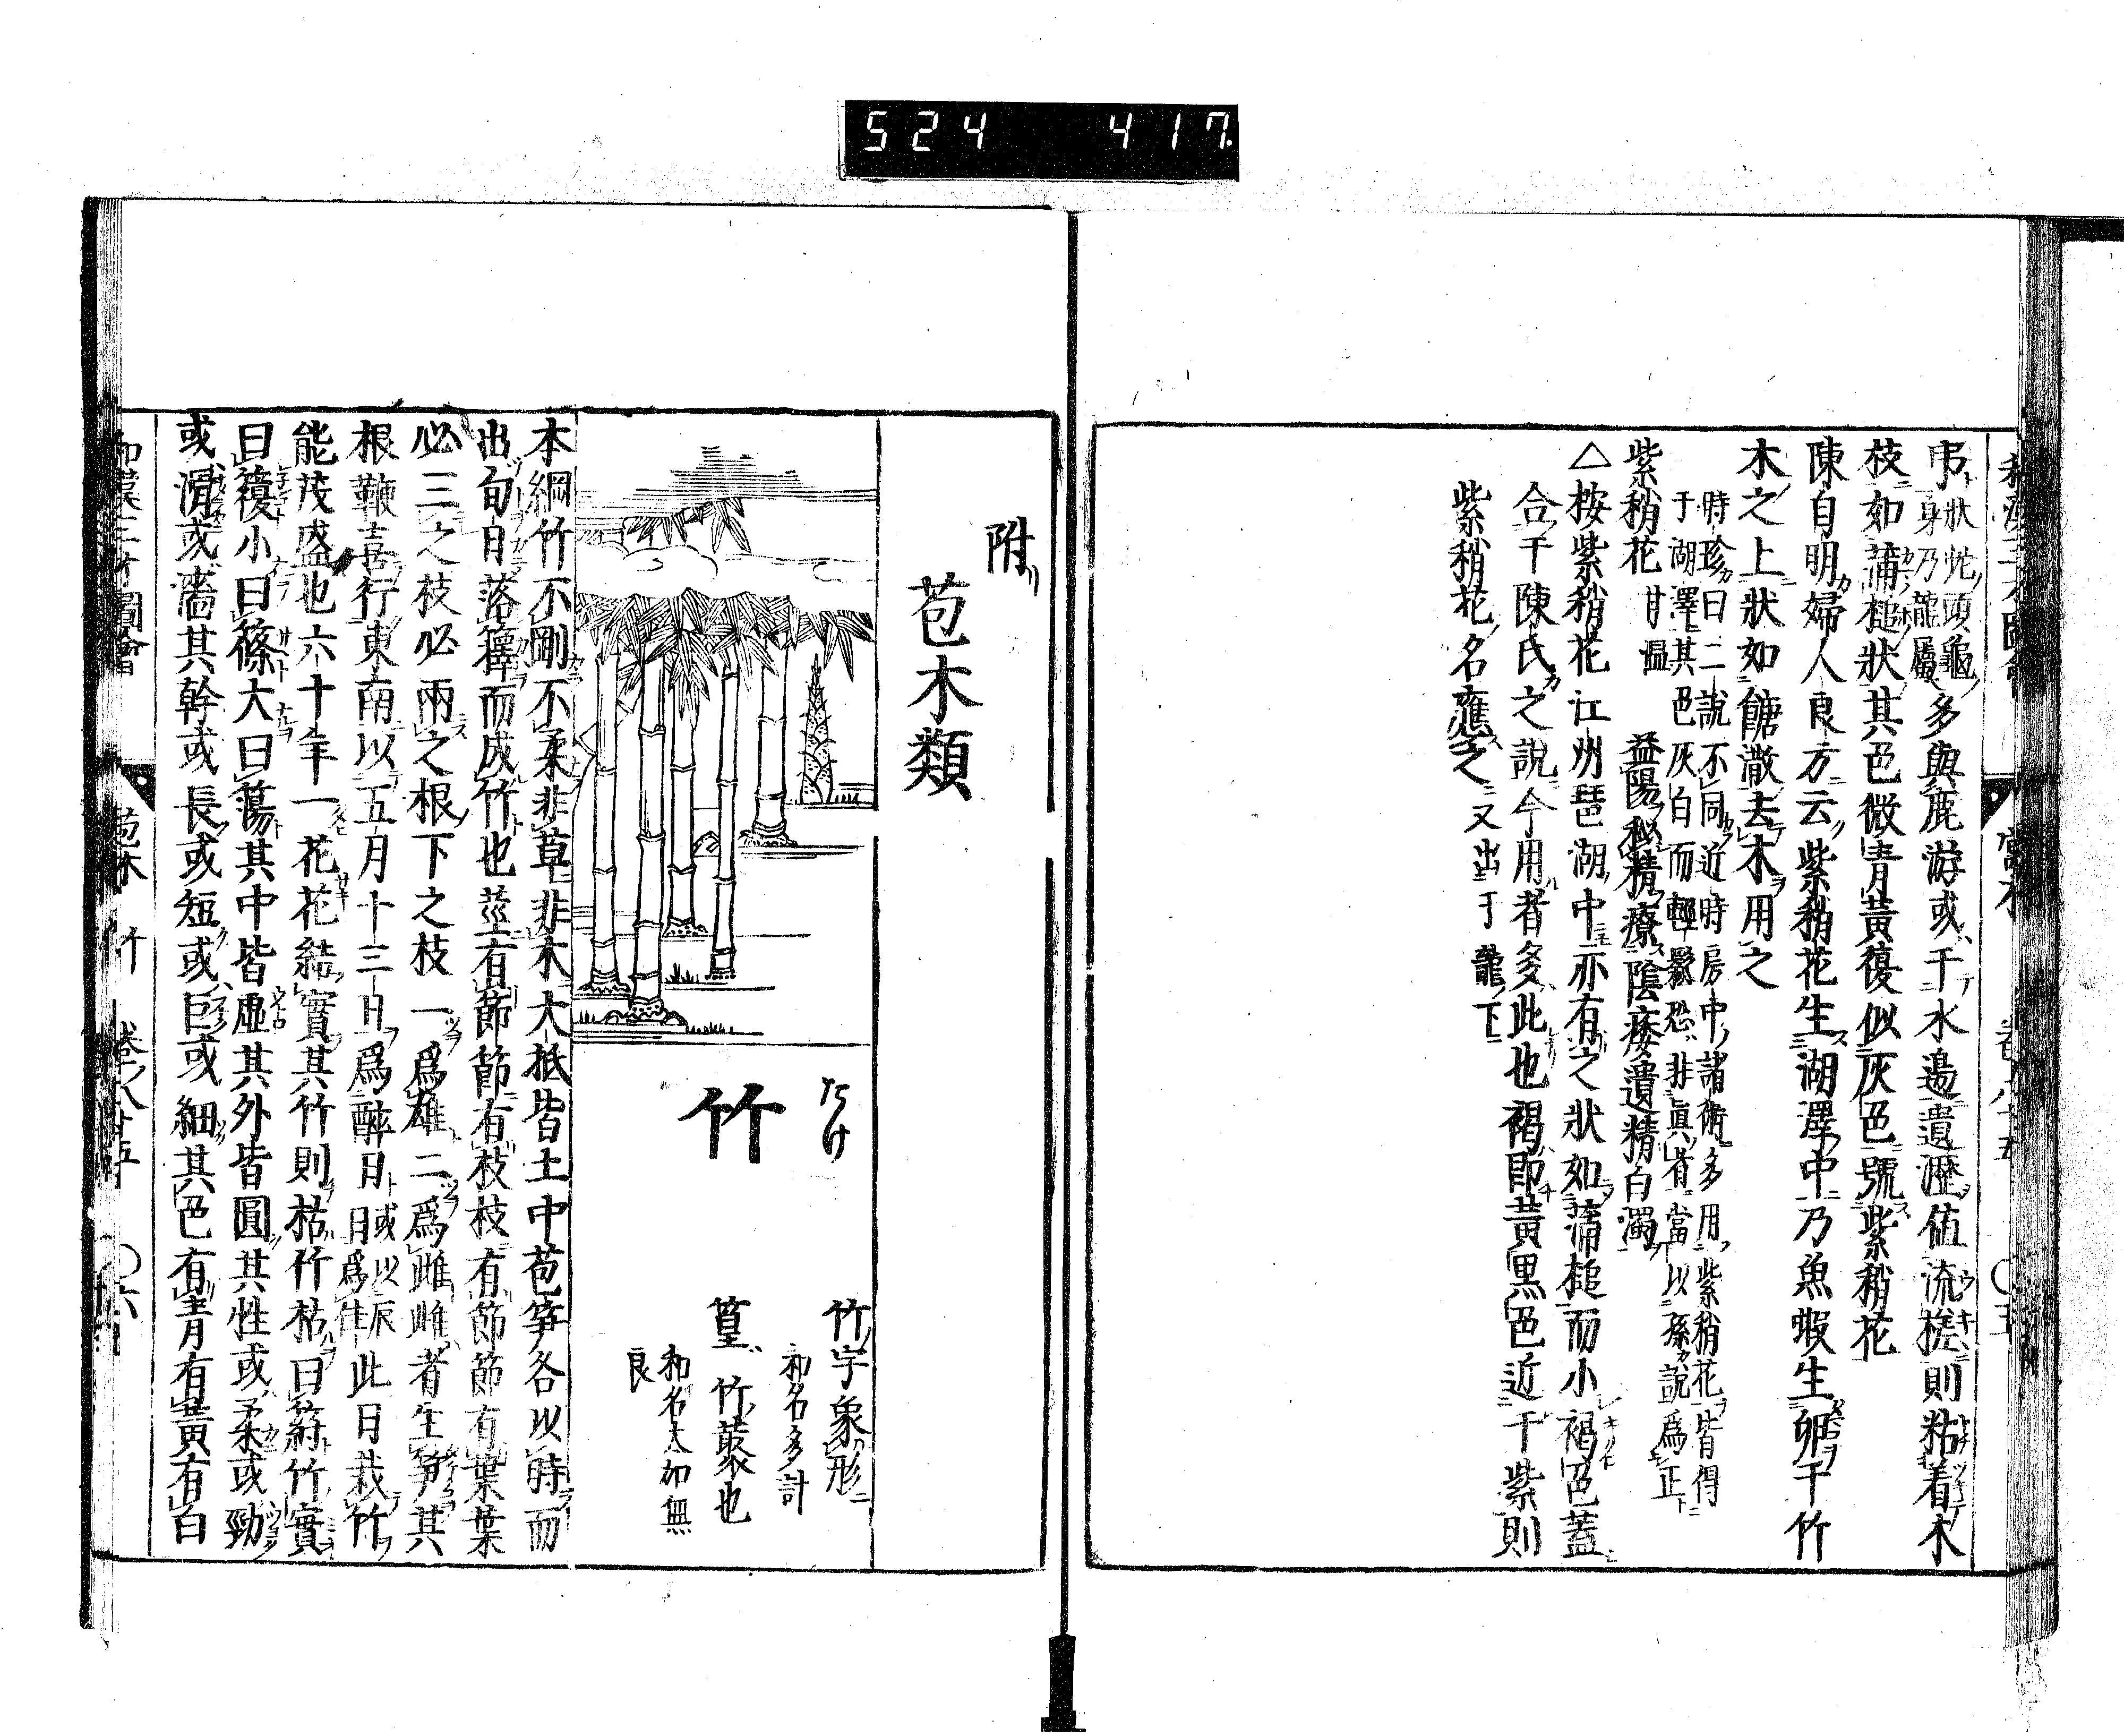 524 417
弔狀蛇頭龜身乃龍屬多與鹿游或于水邊遺瀝值流槎則粘着木
枝如蒲槌狀其色微青黃復似灰色號紫稍花
陳自明婦人良方云紫稍花生湖澤中乃魚蝦生卵于竹
木之上狀如餹潵去木用之
時珍曰二說不同近時房中諸術多用紫稍花皆得
于湖澤其色灰白而輕鬆恐非眞者當以孫說爲正
紫稍花 甘温 益陽秘精療陰痿遺精白濁
△桉紫稍花江州琵琶湖中亦有之狀如蒲槌而小褐色蓋
合于陳氏之說今用者多此也褐卽黃黑色近于紫則
紫稍花名應之 又出于龍下
附
苞木類
たけ
竹
竹字象形
和名多計
篁 竹叢也
和名太加無
良
本綱竹不剛不柔非草非木大抵皆土中苞筍各以時而
出旬日落籜而成竹也莖有節節有枝枝有節節有葉葉
必三之枝必兩之根下之枝一爲雄二爲雌雌者生筍其
根鞭喜行東南以五月十三日爲醉日或以辰日爲佳此日栽竹
能茂盛也六十年一花花結實其竹則枯竹枯曰䈙竹實
曰䈡小曰篠大曰簜其中皆虛其外皆圓其性或柔或勁
或滑或濇其幹或長或短或巨或細其色有青有黃有白
和漢三才圖會 苞木 竹 卷ノ八十五 〇六